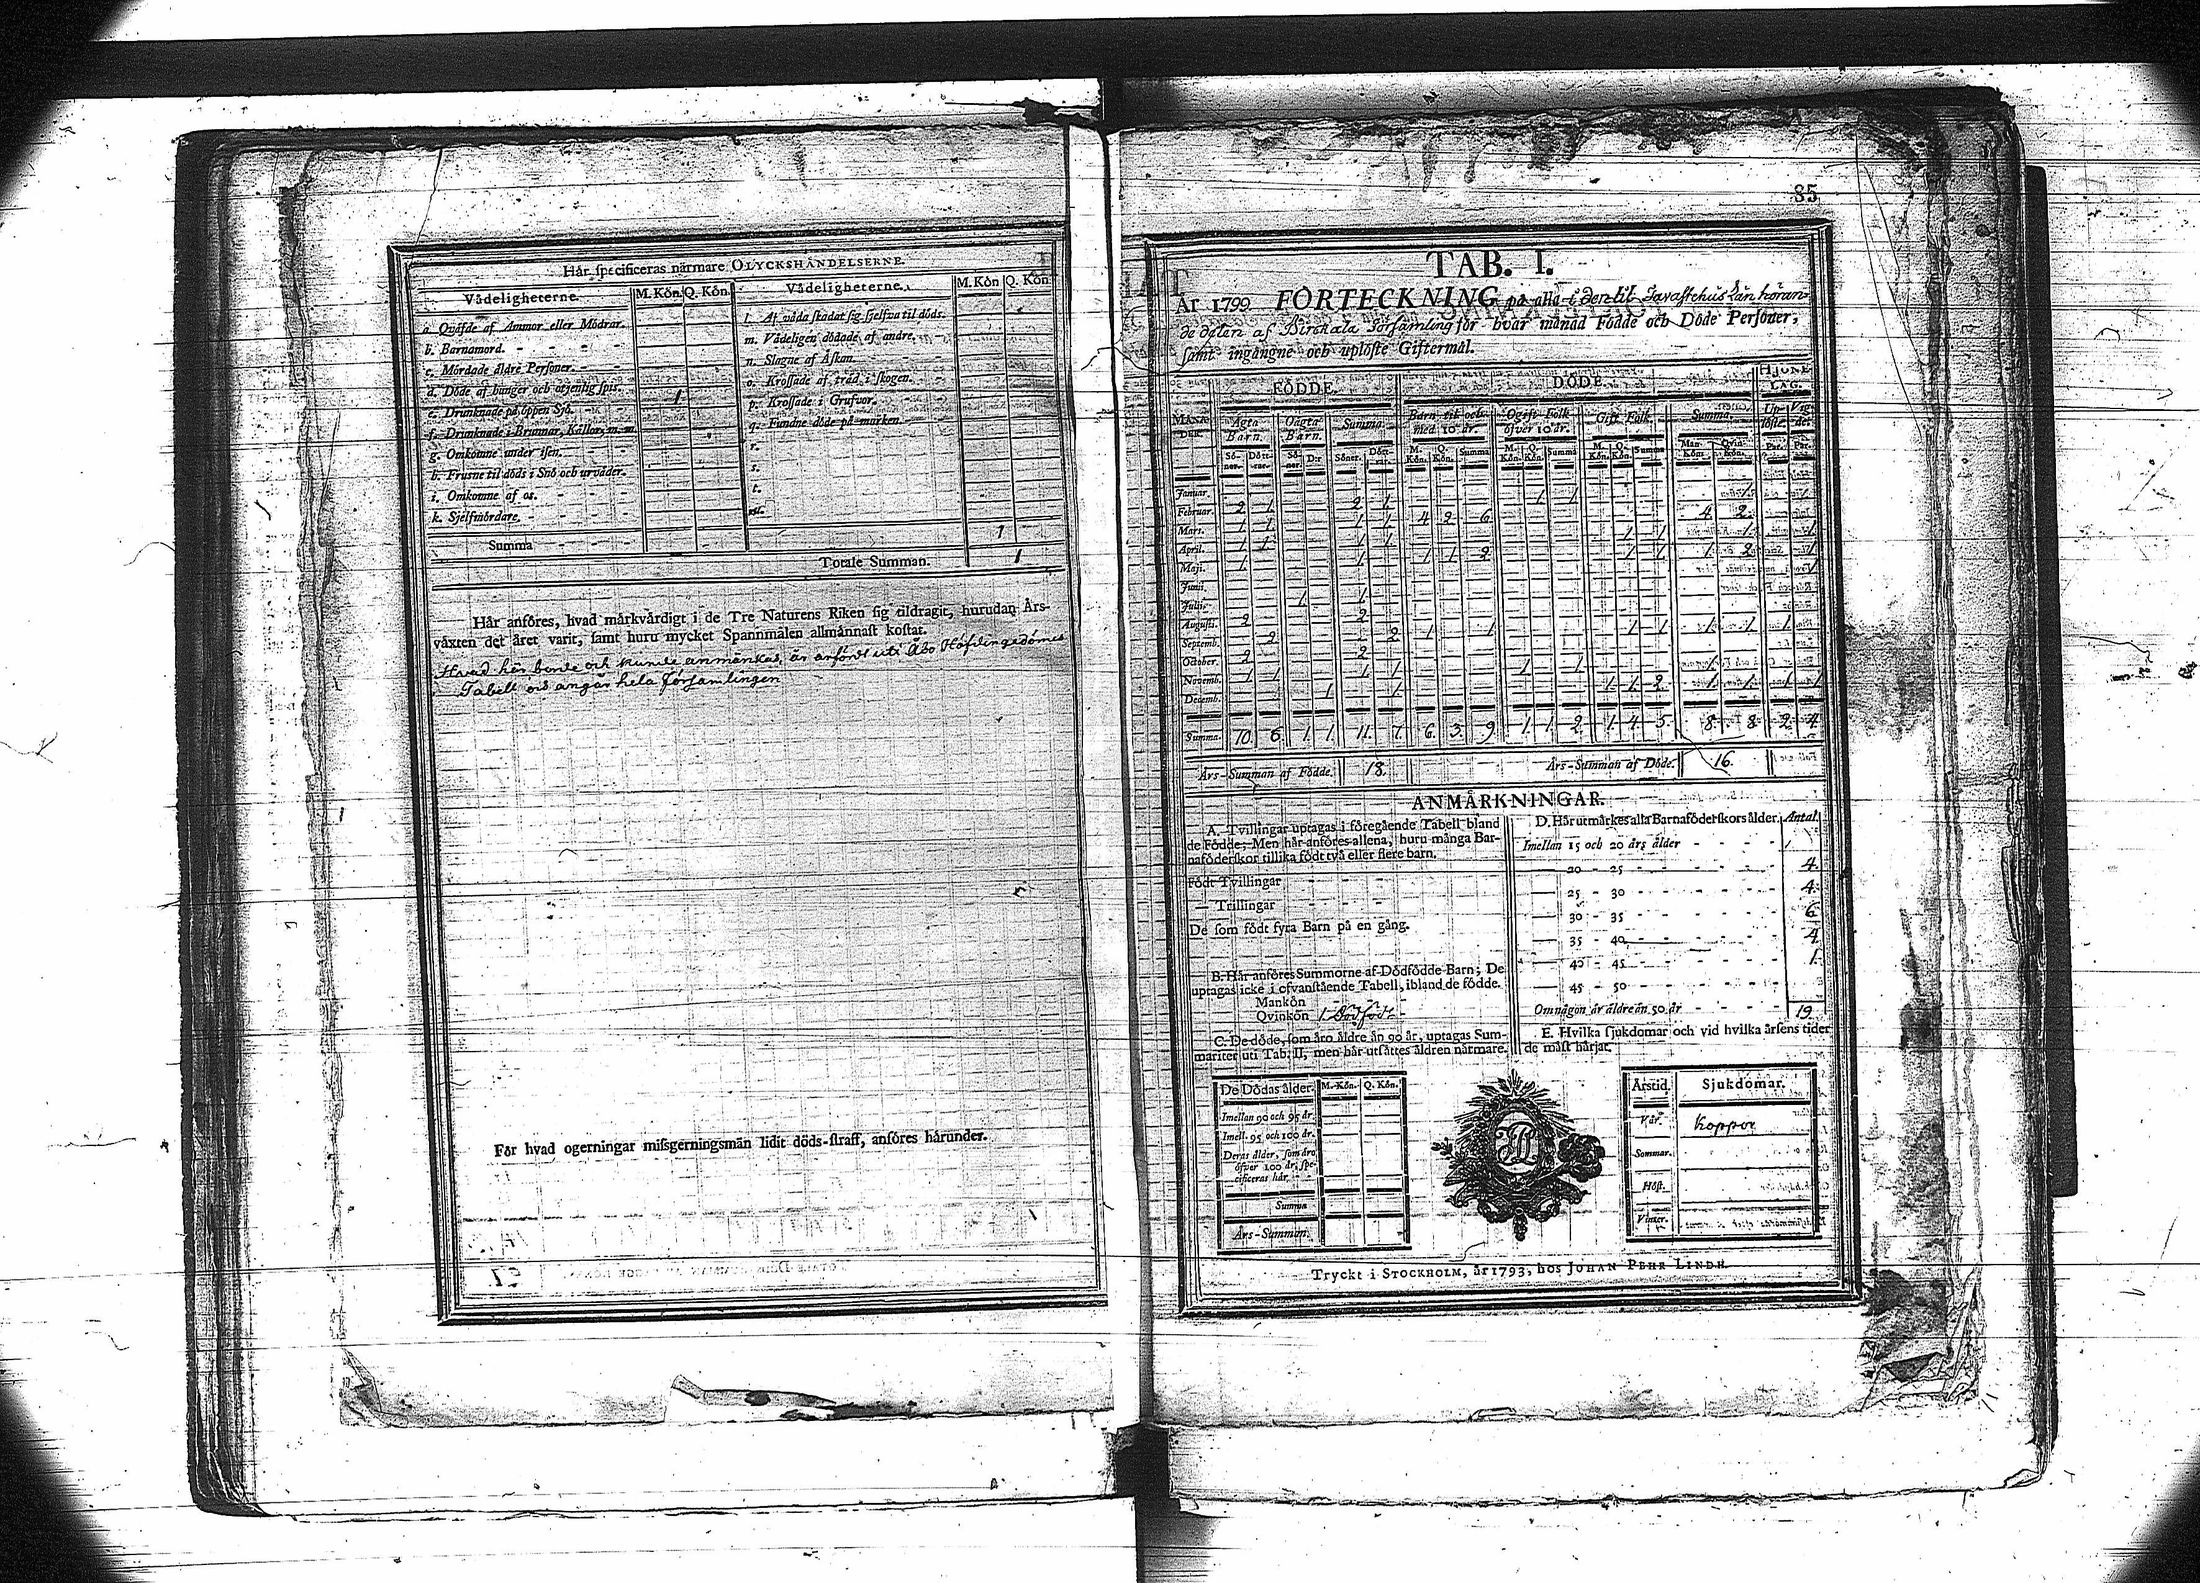 Här specificeras närmare OLYCKSHÄNDELSERNE.
Vådeligheterne. M. Kön Q. Kön. Vådeligheterne. M. Kön Q. Kön
a. Qväfde af Ammor eller Mödrar.
b. Barnamord.
c. Mördade äldre Personer.
d. Döde af hunger och otjenlig spis. 1
e. Drunknade på öppen Sjö.
f. Drunknade i Brunnar, Källor, m. m.
g. Omkomne under isen.
h. Frusne til döds i Snö och urväder.
i. Omkomne af os.
k. Sjelfmördare.
l. Af våda skadat sig sjelfva til döds.
m. Vådeligen dödade af andre.
n. Slagne af Åskan.
o. Krossade af träd i skogen.
p. Krossade i Grufvor.
q. Fundne döde på marken.
r.
s.
t.
Summa 1
Totale Summan. 1
Här anföres, hvad märkvärdigt i de Tre Naturens Riken sig tildragit, hurudan Års-
växten det året varit, samt huru mycket Spannmålen allmännast kostat.
Hvad här borde och kunde anmärkas, är anfördt uti Åbo Höfdingedömes
Tabell och angår hela församlingen
För hvad ogerningar missgerningsmän lidit döds-straff, anföres härunder.
85
TAB. I.
År 1799 FÖRTECKNING på alla i den til Tavastehus Län höran-
de delen af Birckala Församling för hvar månad Födde och Döde Personer,
samt ingångne och uplöste Giftermål.
FÖDDE. DÖDE. HJONE-
LAG.
MÅNA-
DER. Ägta
Barn. Oägta
Barn. Summa. Barn til och
med 10 år. Ogift Folk
öfver 10 år. Gift Folk. Summa. Up-
löste. Vig-
de.
Sö-
ner. Dött-
rar. Sö-
ner. D:r Söner. Dött-
rar. M.
Kön. Q.
Kön. Summa M.
Kön. Q.
Kön. Summa M.
Kön. Q.
Kön. Summa Man-
Kön Qvin-
Kön. Par. Par.
Januar. 2 1 2 1 1 1 1
Februar. 1 1 1 1 4 2 6 4 2
Mart. 1 1 1 1 1 1 1 1
April. 1 1 1 1 2 1 1 1 2 1
Maji. 1
Junii. 1 1
Julii. 2 2
Augusti. 2 2 1 1 1 1 1 1 1
Septemb. 2 2
October. 1 1 1 1 1 1 1
Novemb. 1 1 1 1 2 1 1 1 1
Decemb.
Summa 10 6. 1. 1. 11. 7. 6. 3. 9 1. 1. 2. 1. 4. 5. 8. 8. 2. 4.
Års-Summan af Födde. 18. Års-Summan af Döde. 16.
ANMÄRKNINGAR.
A. Tvillingar uptagas i föregående Tabell bland
de Födde; Men här anföres allena, huru många Bar-
naföderskor tillika födt två eller flere barn.
Födt Tvillingar
— Trillingar
De som födt fyra Barn på en gång.
B. Här anföres Summorne af Dödfödde Barn; De
uptagas icke i ofvanstående Tabell, ibland de födde.
Mankön
Qvinkön 1 Dödfödt
C. De döde, som äro äldre än 90 år, uptagas Sum-
mariter uti Tab. II, men här utsättes åldren närmare.
De Dödas ålder. M. Kön. Q. Kön.
Imellan 90 och 95 år.
Imell. 95 och 100 år.
Deras ålder, som äro
öfver 100 år, spe-
cificeras här.
Summa
Års-Summan.
D. Här utmärkes alla Barnaföderskors ålder. Antal.
Imellan 15 och 20 års ålder
— 20 - 25 4.
— 25 - 30 4.
— 30 - 35 6
— 35 - 40 4
— 40 - 45 1.
— 45 - 50
Om någon är äldre än 50 år 19.
E. Hvilka sjukdomar och vid hvilka årsens tider
de mäst härjat.
Årstid. Sjukdomar.
Vår. Koppor
Sommar.
Höst.
Vinter.
Tryckt i STOCKHOLM, år 1793, hos JOHAN PEHR LINDH.